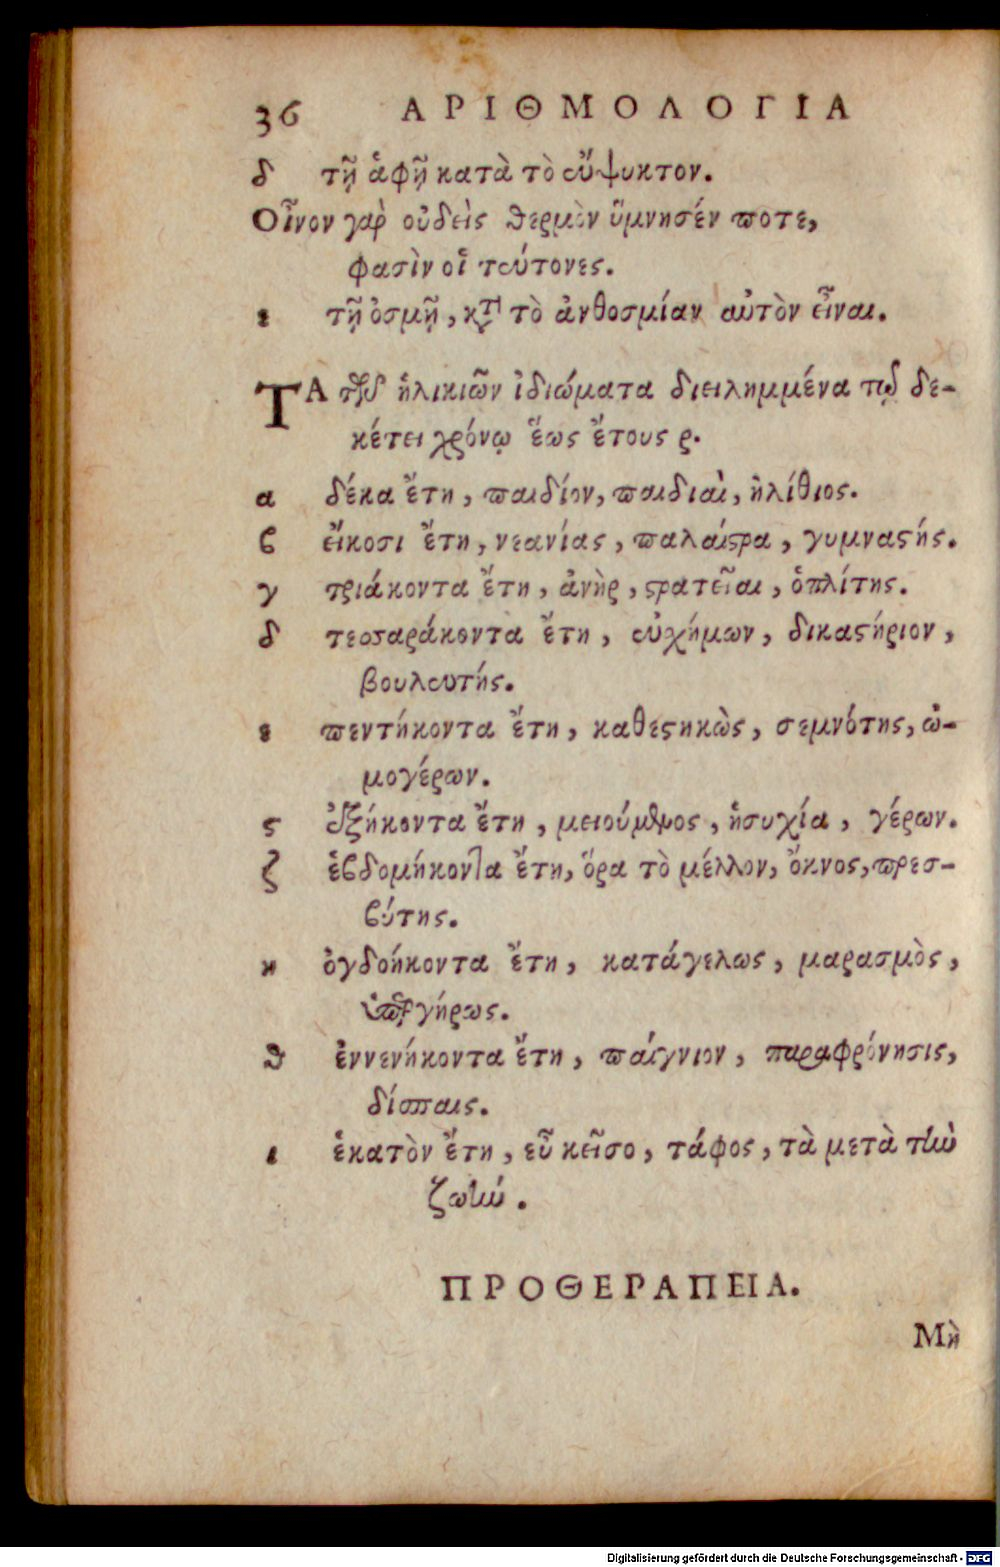 36 ΑΡΙΘΜΟΛΟΓΙΑ
δ τῇ ἁφῇ κατὰ τὸ εὔψυκτον.
Οἶνον γὰρ οὐδεὶς θερμὸν ὕμνησέν ποτε,
φασὶν οἱ τεύτονες.
ε τῇ ὀσμῇ, κτ τὸ ἀνθοσμίαν αὐτὸν εἶναι.
ΤΑ τῶν ἡλικιῶν ἰδιώματα διειλημμένα τῷ δε-
κέτει χρόνῳ ἕως ἔτους ρ.
α δέκα ἔτη, παιδίον, παιδιαὶ, ἠλίθιος.
ϐ εἴκοσι ἔτη, νεανίας, παλαίϛρα, γυμναϛής.
γ τριάκοντα ἔτη, ἀνὴρ, ϛρατεῖαι, ὁπλίτης.
δ τεσσαράκοντα ἔτη, εὐχήμων, δικαϛήριον,
βουλευτής.
ε πεντήκοντα ἔτη, καθεϛηκὼς, σεμνότης, ὠ-
μογέρων.
ϛ ἑξήκοντα ἔτη, μειούμενος, ἡσυχία, γέρων.
ζ ἑϐδομήκοντα ἔτη, ὅρα τὸ μέλλον, ὄκνος, πρεσ-
ϐύτης.
η ὀγδοήκοντα ἔτη, κατάγελως, μαρασμὸς,
ὑπέργήρως.
θ ἐννενήκοντα ἔτη, παίγνιον, παραφρόνησις,
δίσπαις.
ι ἑκατὸν ἔτη, εὖ κεῖσο, τάφος, τὰ μετὰ τὴν
ζωήν.
ΠΡΟΘΕΡΑΠΕΙΑ.
Μὴ
Digitalisierung gefördert durch die Deutsche Forschungsgemeinschaft - DFG